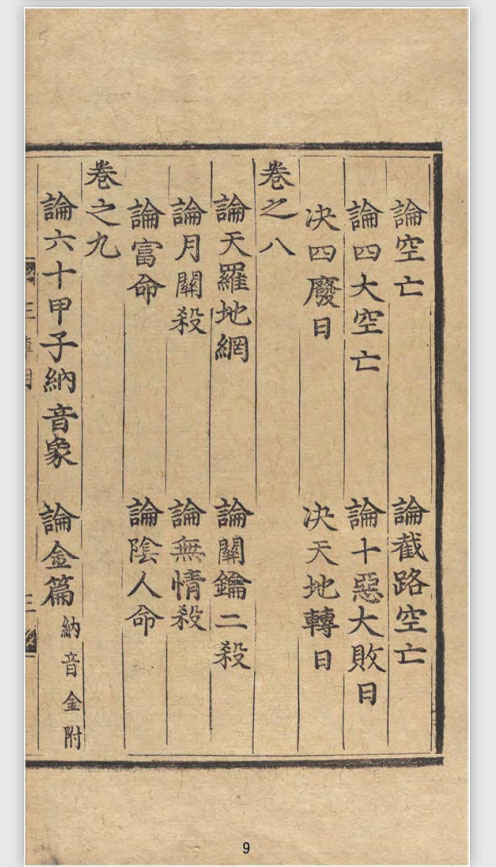 論空亡 論截路空亡
論四大空亡 論十惡大敗日
决四廢日 决天地轉日
卷之八
論天羅地網 論關鑰二殺
論月關殺 論無情殺
論富命 論陰人命
卷之九
論六十甲子納音象 論金篇 納音金附
三
9